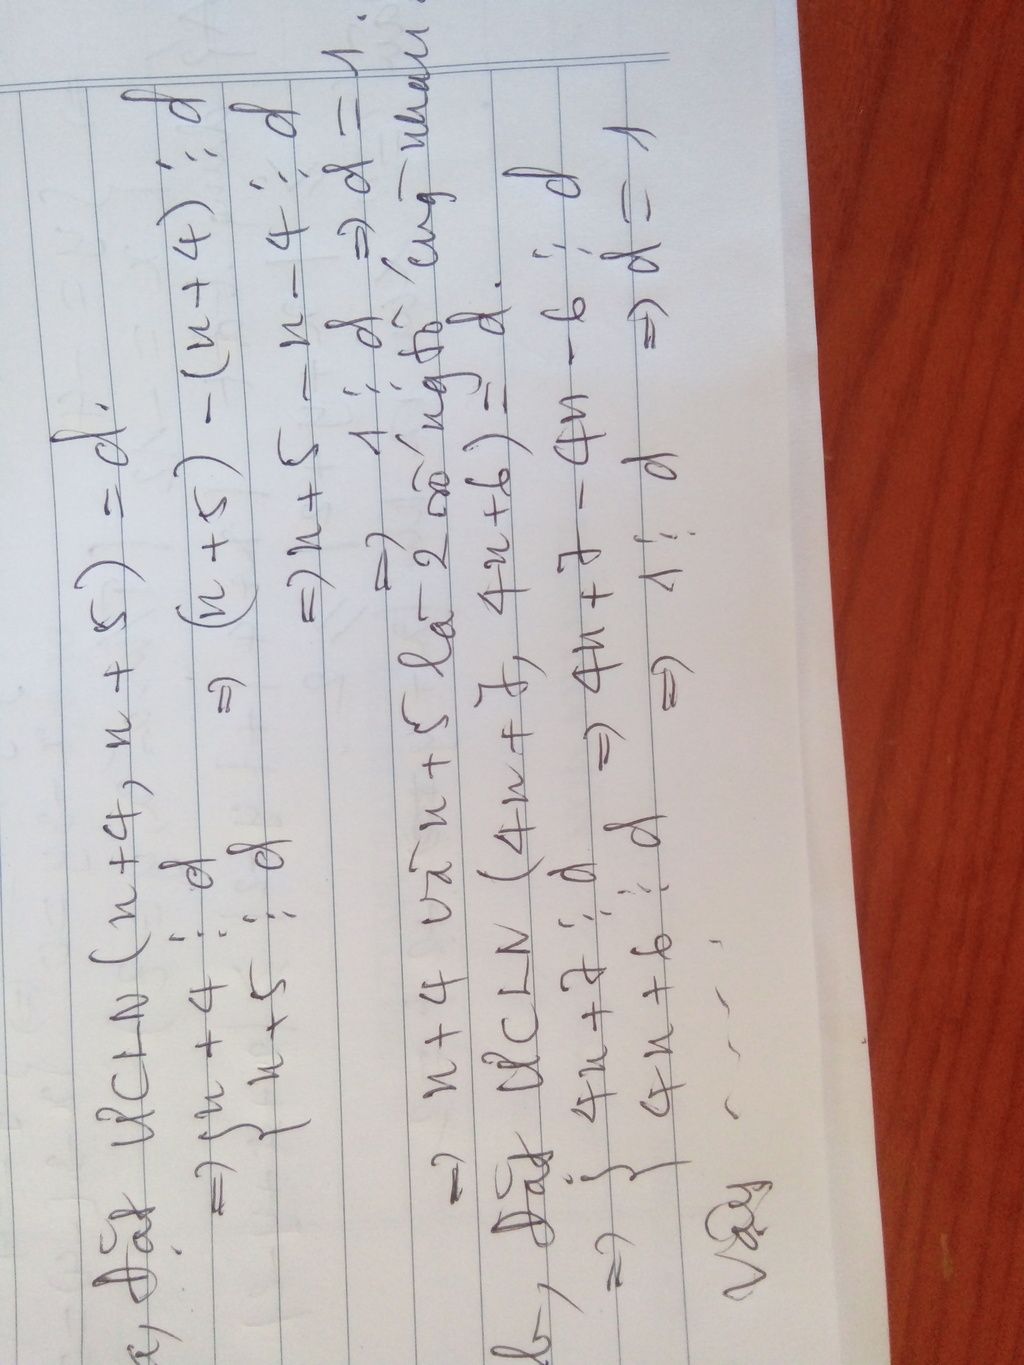 a, Đặt ƯCLN (n+4, n+5) = d.
=> { n+4 ⋮ d => (n+5) - (n+4) ⋮ d
{ n+5 ⋮ d => n+5 - n - 4 ⋮ d
=> 1 ⋮ d => d = 1.
=> n+4 và n+5 là 2 số ngtố cùng nhau.
b, Đặt ƯCLN (4n+7, 4n+6) = d.
=> { 4n+7 ⋮ d => 4n+7 - 4n - 6 ⋮ d
{ 4n+6 ⋮ d => 1 ⋮ d => d = 1
Vậy ....